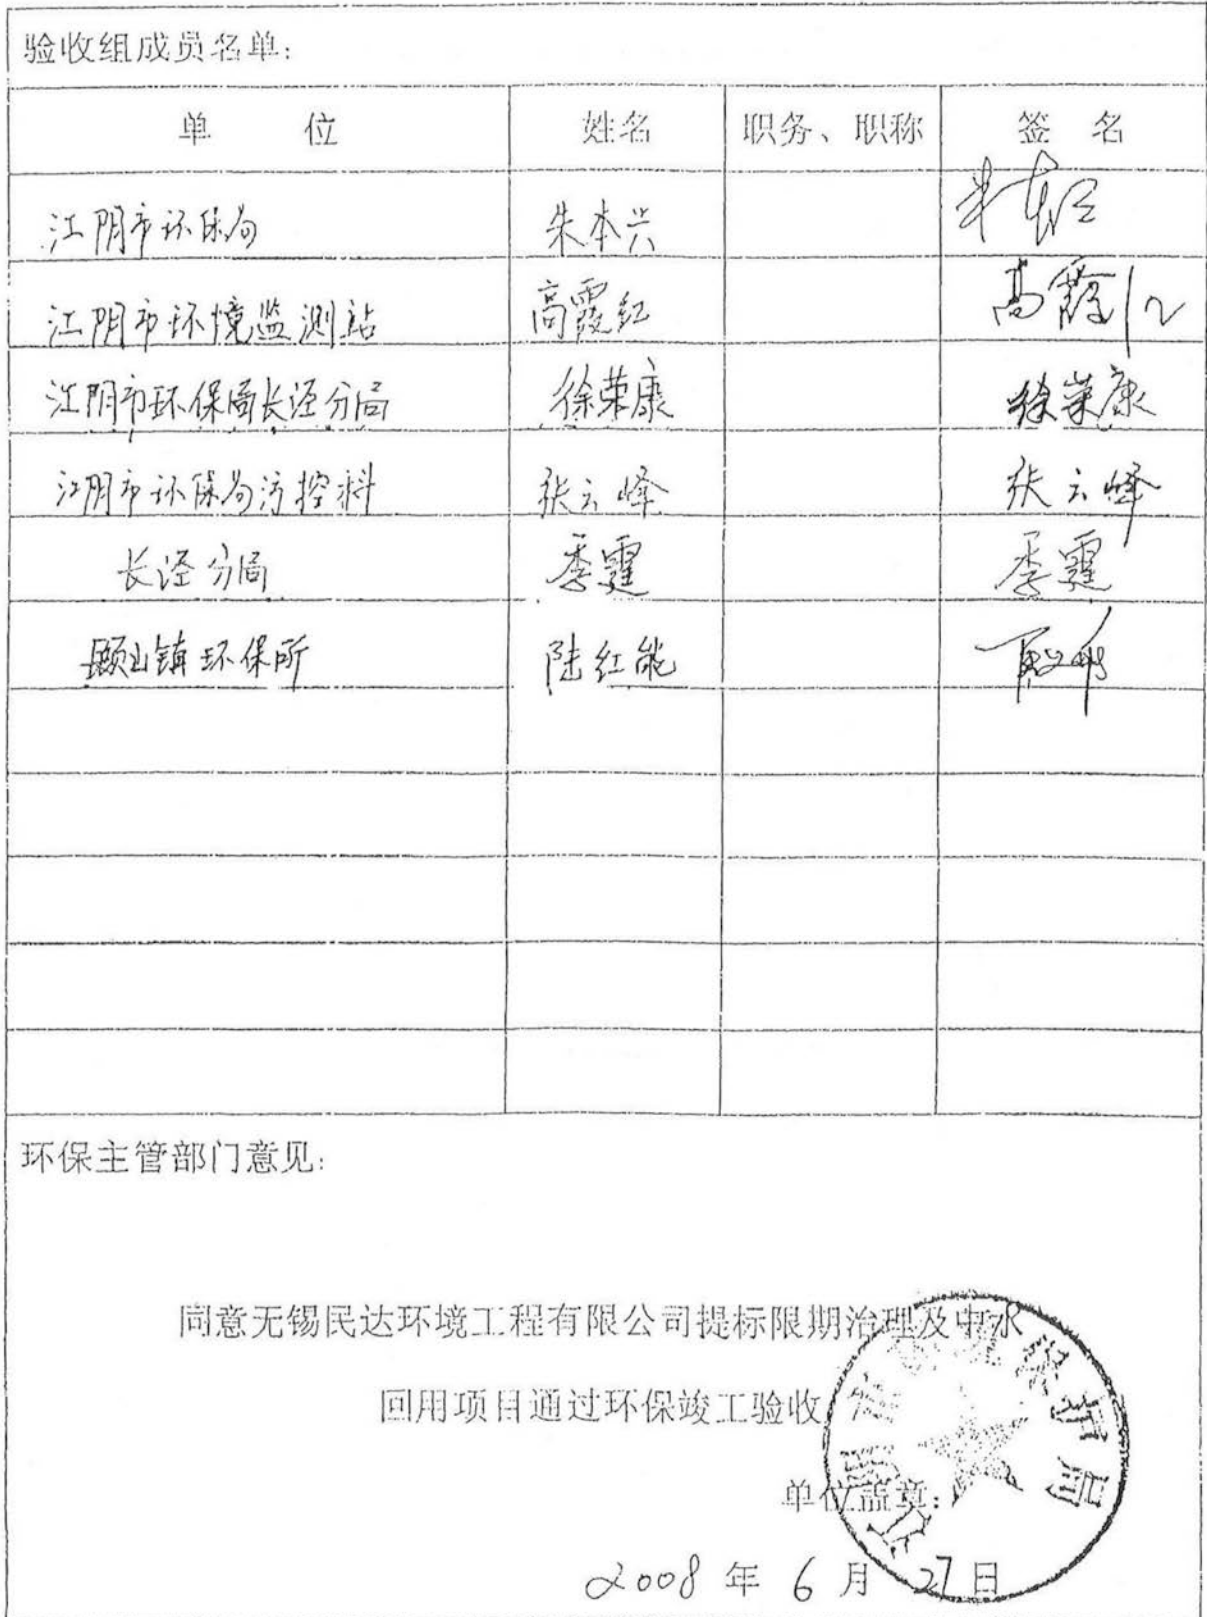 验收组成员名单:
单 位 姓名 职务、职称 签 名
江阴市环保局 朱本兴
江阴市环境监测站 高霞红 高霞红
江阴市环保局长泾分局 徐荣康 徐荣康
江阴市环保局污控科 张云峰 张云峰
长泾分局 季霆 季霆
顾山镇环保所 陆红能
环保主管部门意见:
同意无锡民达环境工程有限公司提标限期治理及中水
回用项目通过环保竣工验收
江阴市环境保护局
单位盖章:
2008 年 6 月 27 日